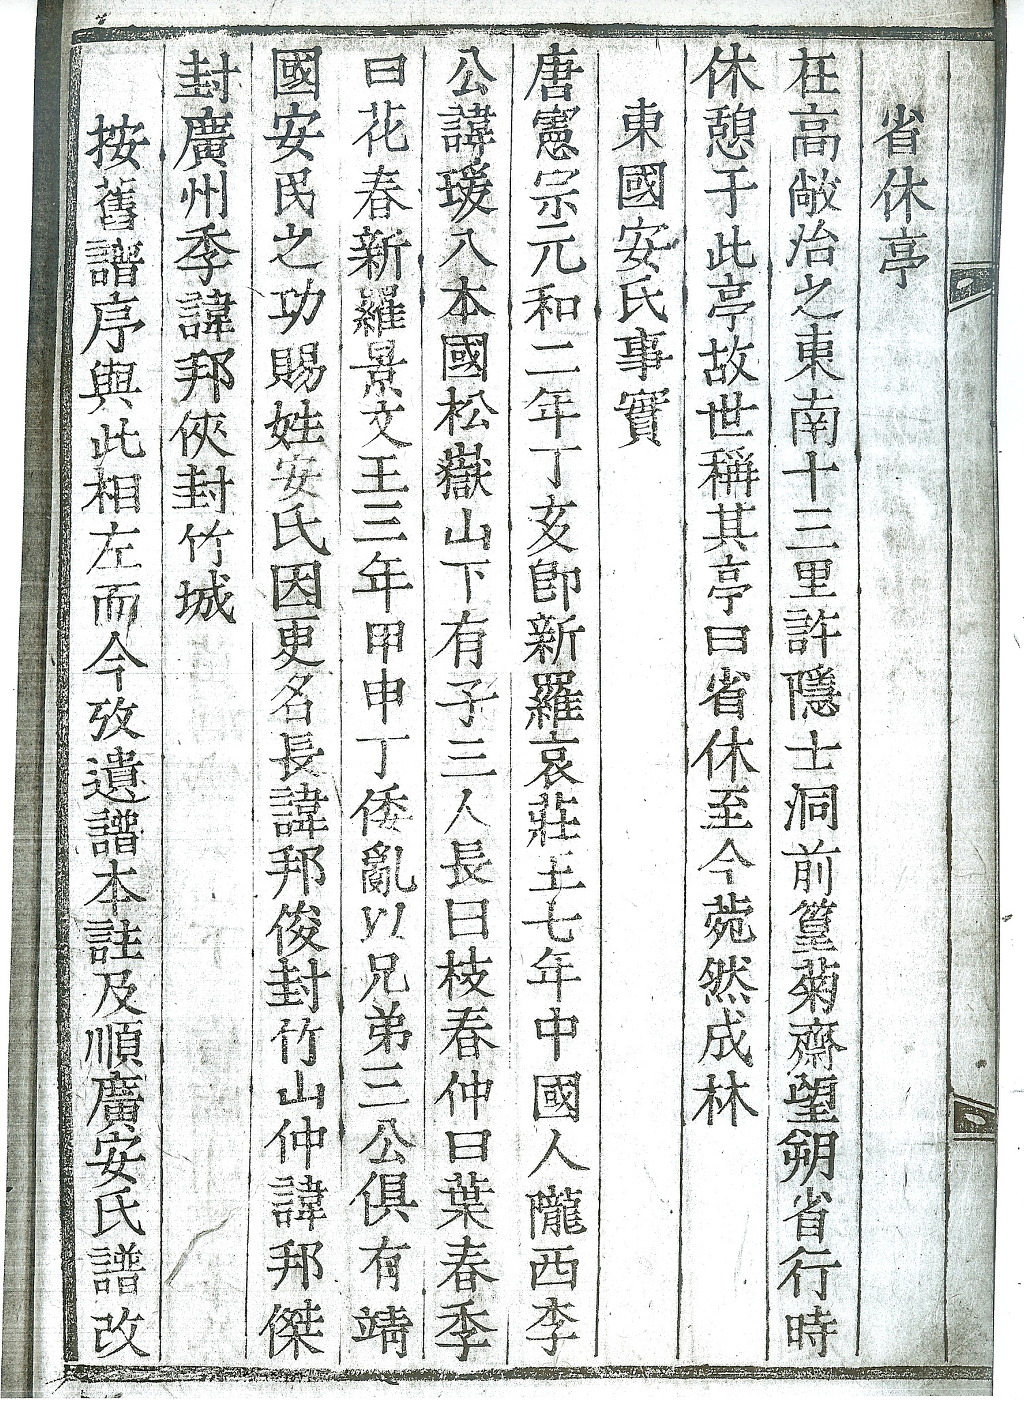 省休亭
在高敞治之東南十三里許隱士洞前篁菊齋望朔省行時
休憩于此亭故世稱其亭曰省休至今菀然成林
東國安氏事實
唐憲宗元和二年丁亥卽新羅哀莊王七年中國人隴西李
公諱瑗入本國松嶽山下有子三人長曰枝春仲曰葉春季
曰花春新羅景文王三年甲申丁倭亂以兄弟三公俱有靖
國安民之功賜姓安氏因更名長諱邦俊封竹山仲諱邦傑
封廣州季諱邦俠封竹城
按舊譜序與此相左而今攷遺譜本註及順廣安氏譜改